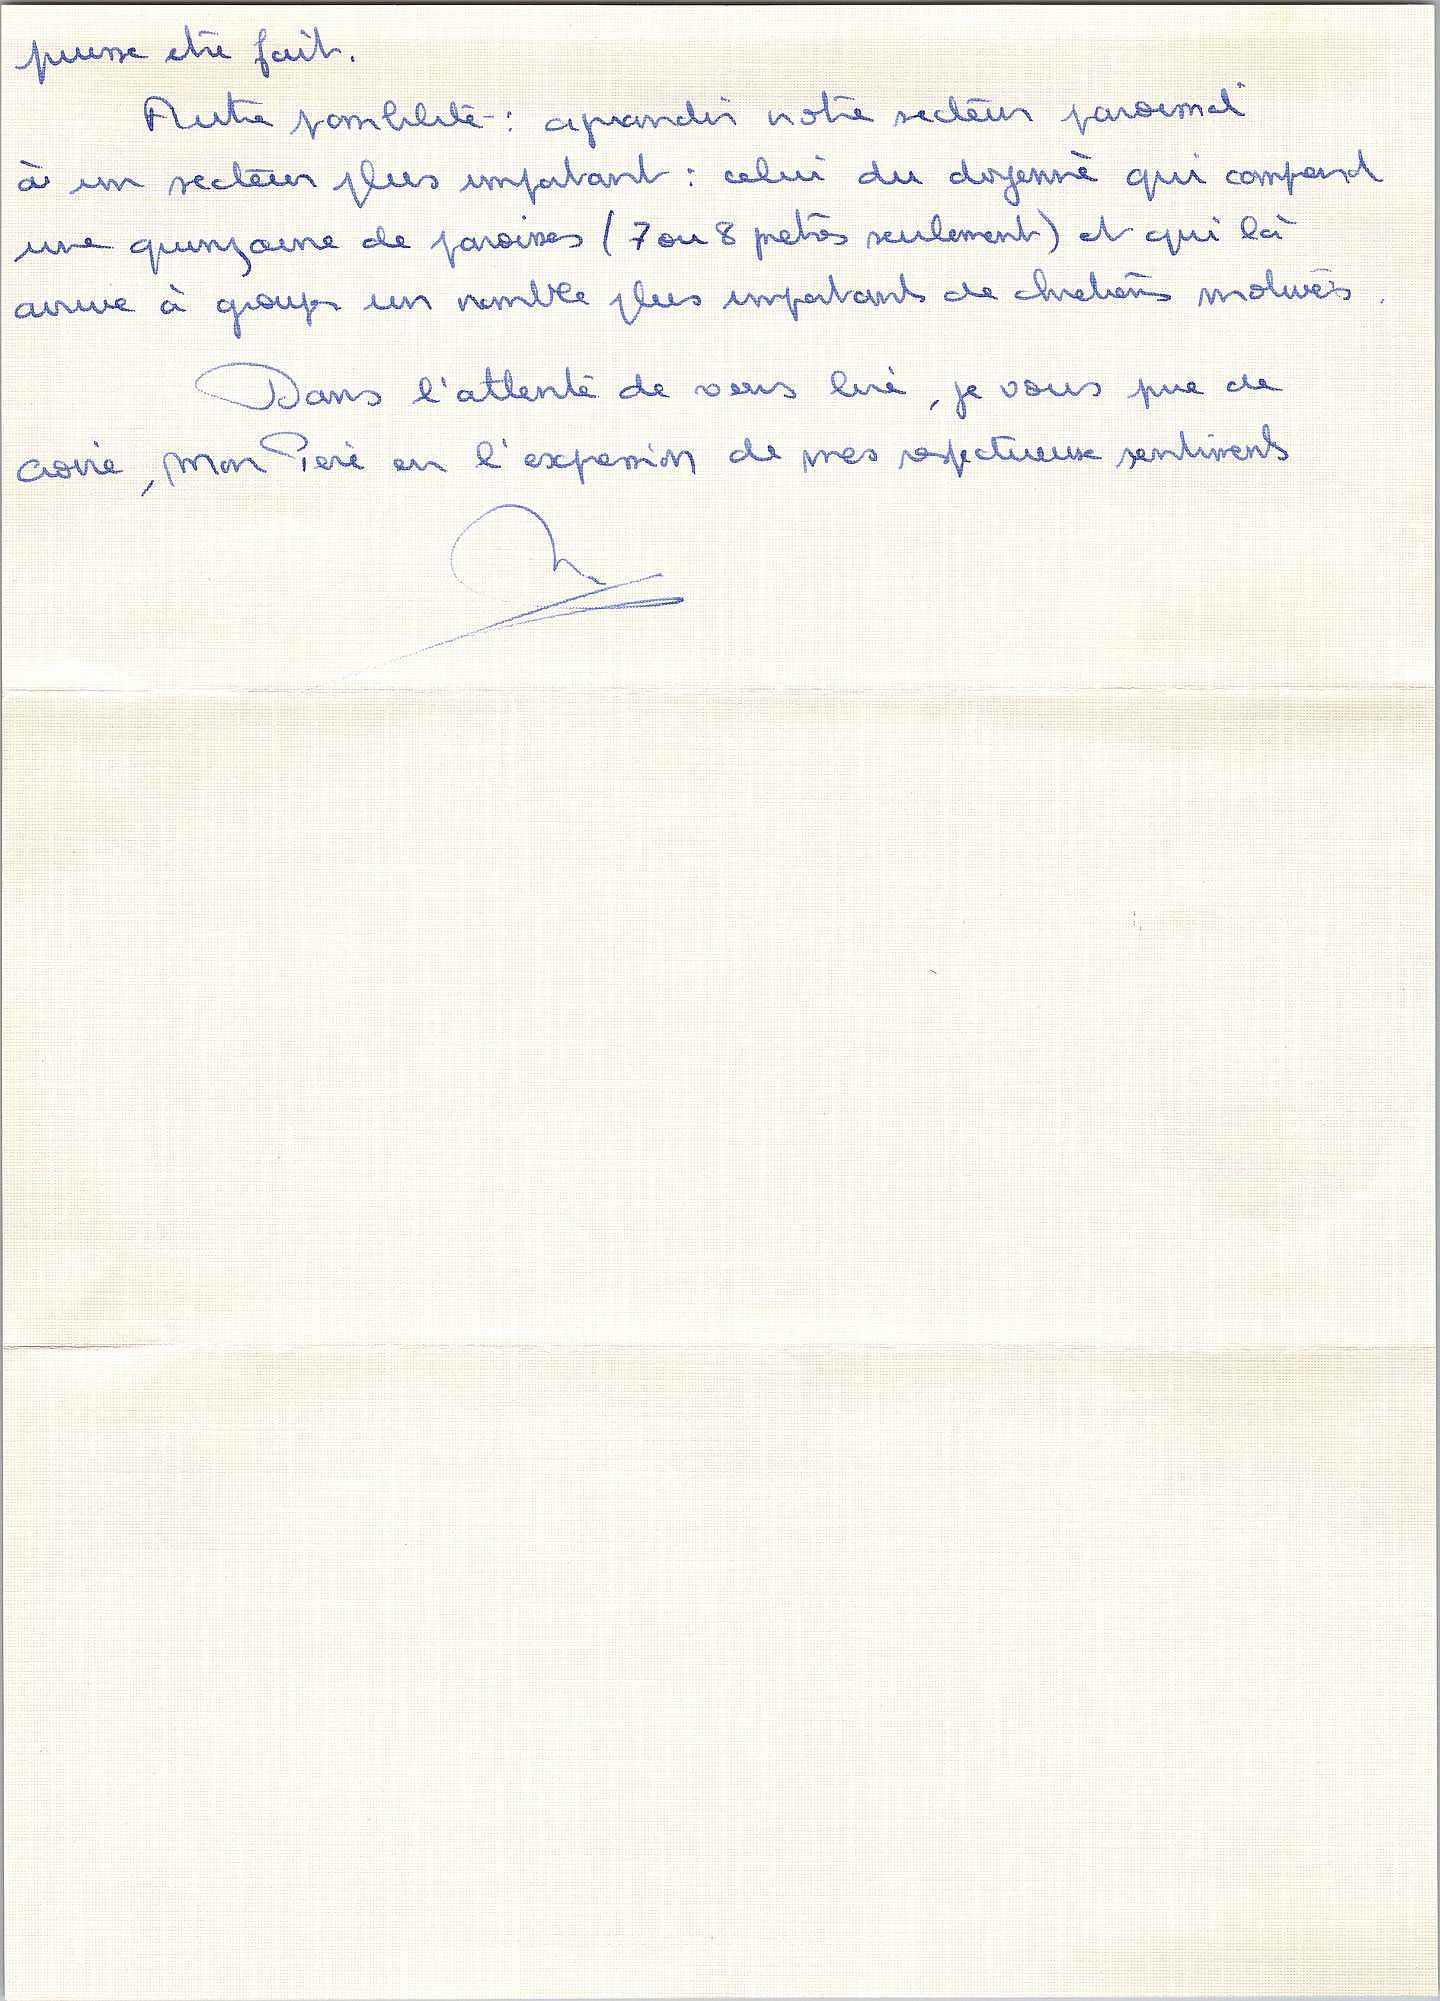 puisse être fait.
Autre possibilité : agrandir notre secteur paroissial
à un secteur plus important : celui du doyenné qui comprend
une quinzaine de paroisses (7 ou 8 prêtres seulement) et qui là
arrive à grouper un nombre plus importants de chrétiens motivés.
Dans l'attente de vous lire, je vous prie de
croire, mon Père en l'expression de mes respectueux sentiments